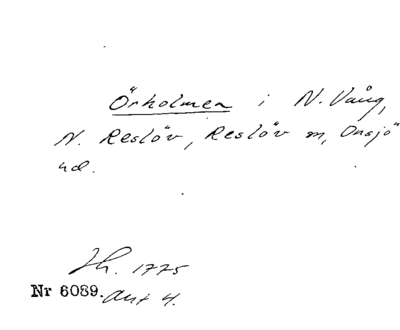 Örholmen i N. Vång,
N. Reslöv, Reslöv m, Onsjö
hd.
Jh. 1775
Nr 6089. akt 4.